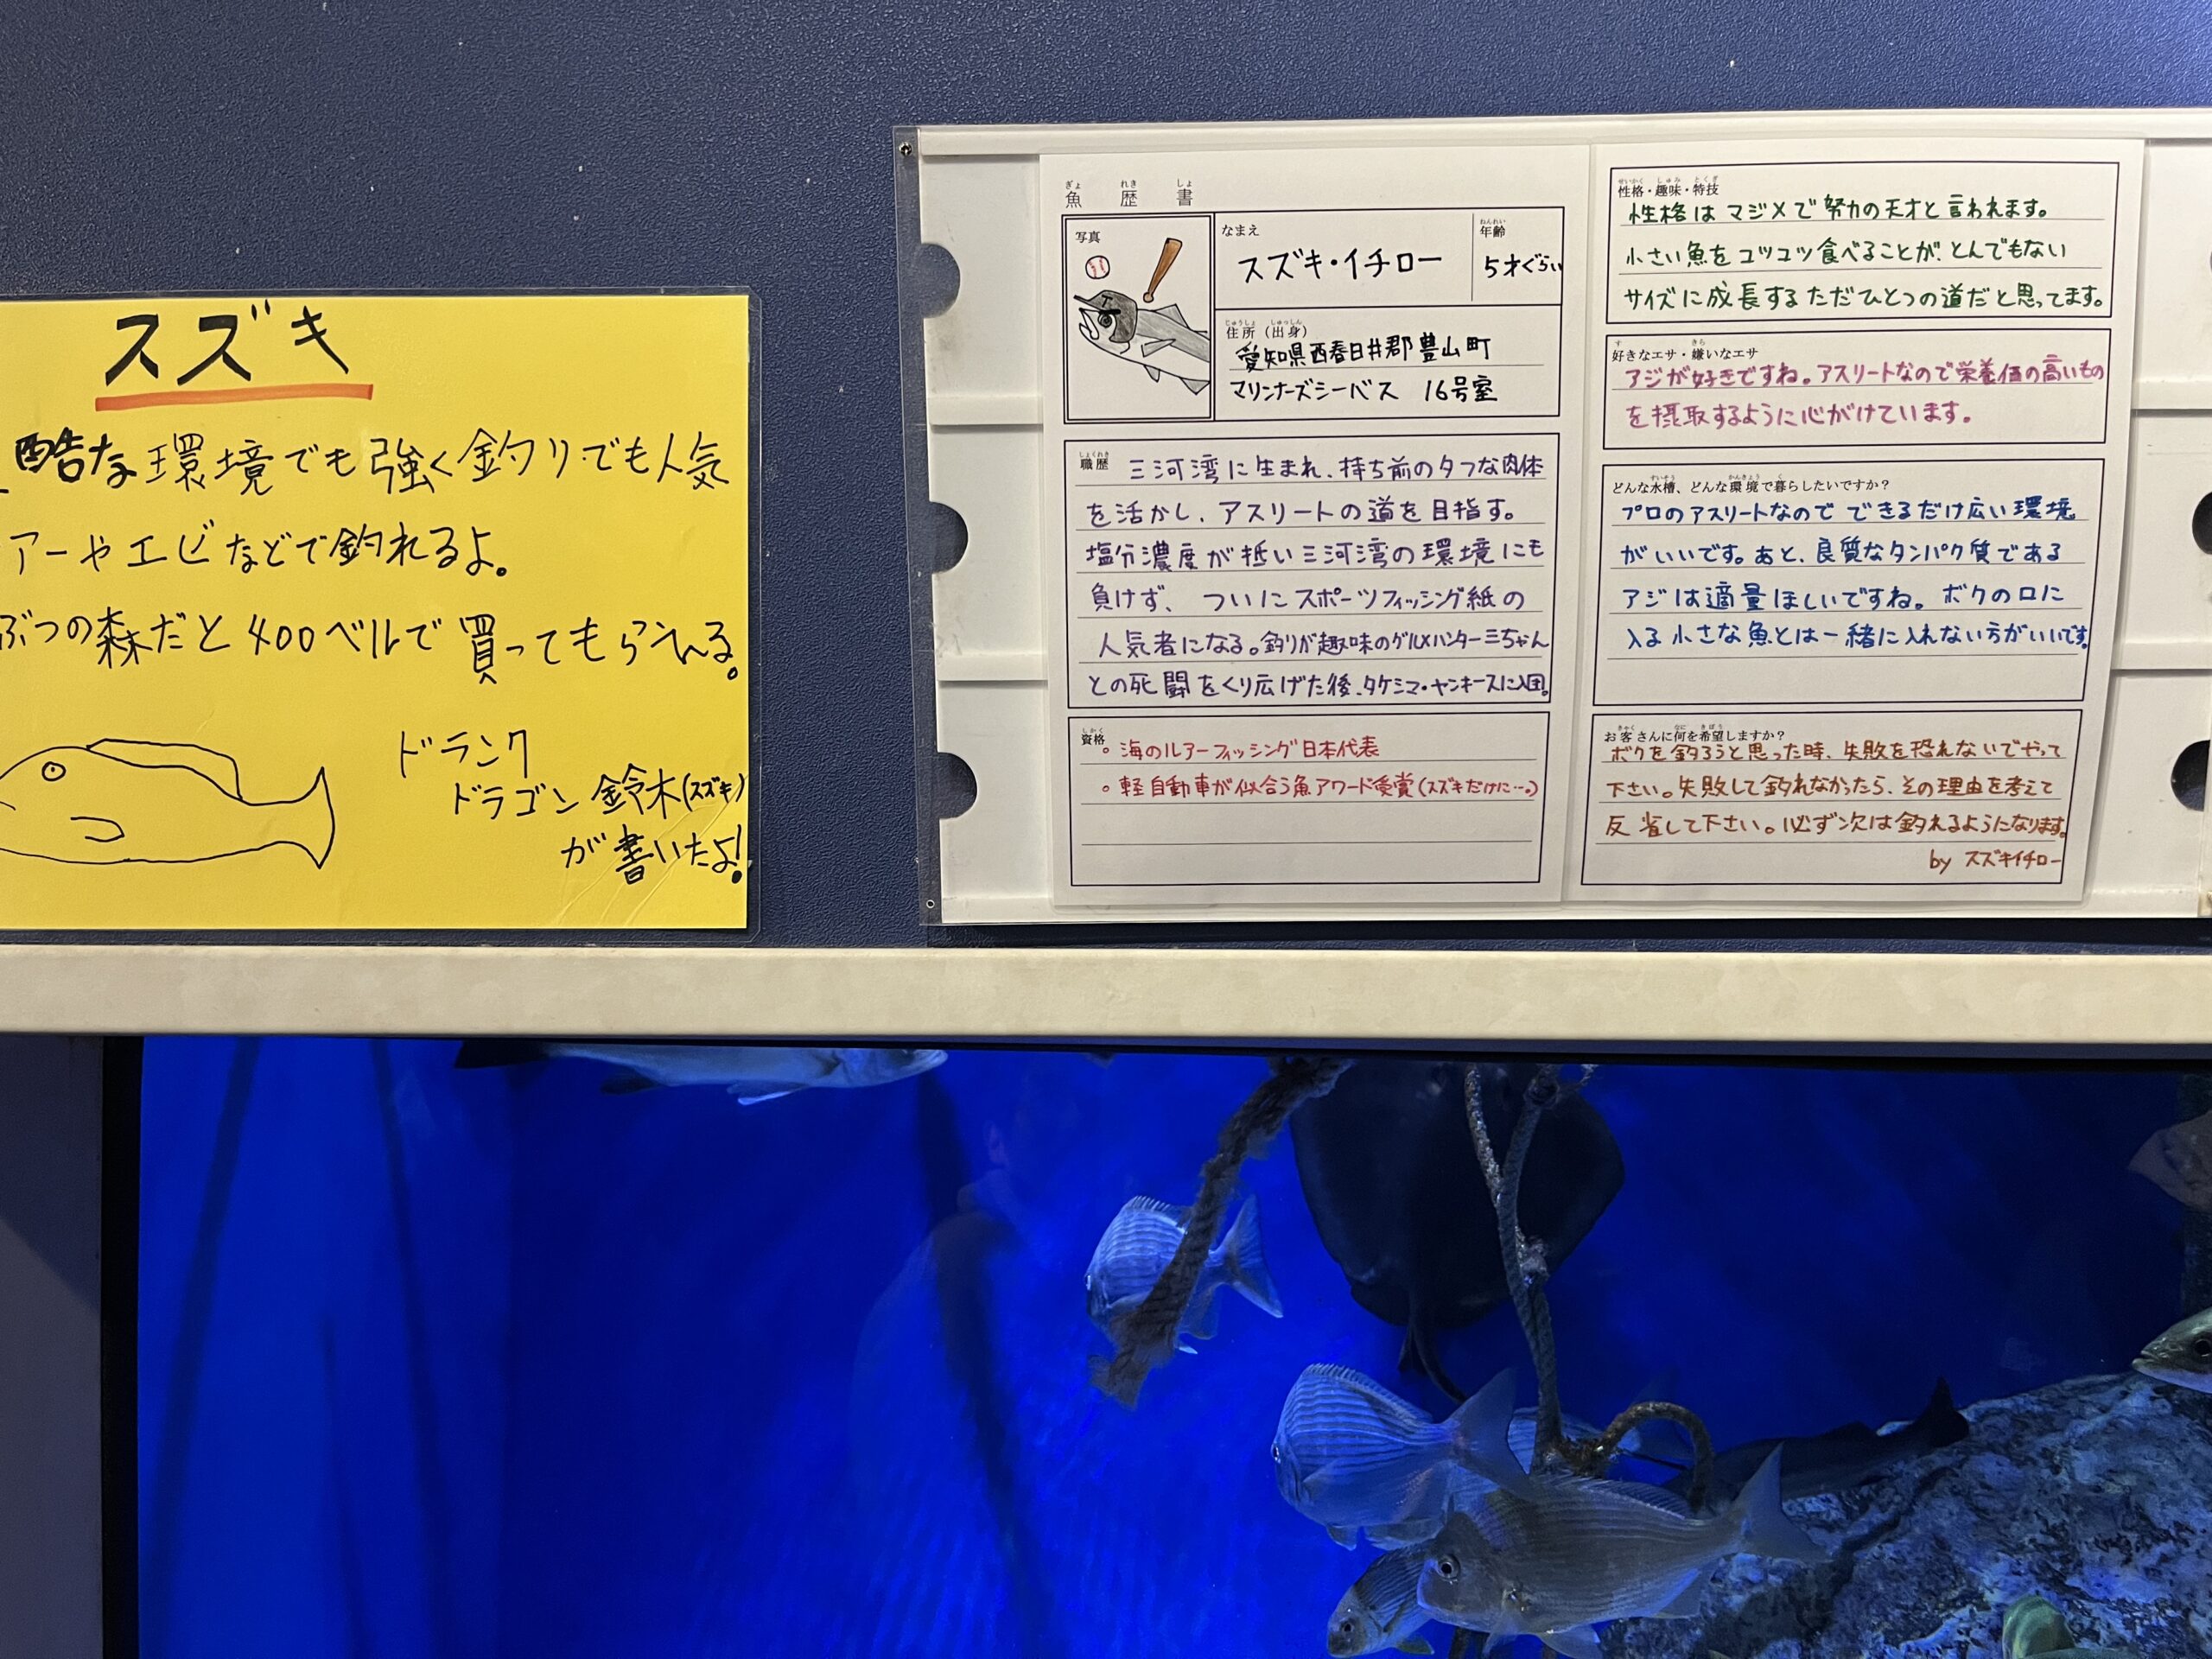 スズキ
酷な環境でも強く釣りでも人気
アーやエビなどで釣れるよ。
ぶつの森だと400ベルで買ってもらえる。
ドランク
ドラゴン 鈴木(スズキ)
が書いたよ!
魚歴書
ぎょ れき しょ
写真
T
なまえ
スズキ・イチロー
ねんれい
年齢
5才ぐらい
じゅうしょ しゅっしん
住所(出身)
愛知県西春日井郡豊山町
マリンナーズシーバス 16号室
しょくれき
職歴
三河湾に生まれ、持ち前のタフな肉体
を活かし、アスリートの道を目指す。
塩分濃度が低い三河湾の環境にも
負けず、ついにスポーツフィッシング紙の
人気者になる。釣りが趣味のグルメハンター三ちゃん
との死闘をくり広げた後、タケシマ・ヤンキースに入団。
しかく
資格
。海のルアーフィッシング日本代表
。軽自動車が似合う魚アワード受賞(スズキだけに…。)
せいかく しゅみ とくぎ
性格・趣味・特技
性格はマジメで努力の天才と言われます。
小さい魚をコツコツ食べることが、とんでもない
サイズに成長するただひとつの道だと思ってます。
す きら
好きなエサ・嫌いなエサ
アジが好きですね。アスリートなので栄養価の高いもの
を摂取するように心がけています。
すいそう かんきょう く
どんな水槽、どんな環境で暮らしたいですか?
プロのアスリートなので できるだけ広い環境
がいいです。あと、良質なタンパク質である
アジは適量ほしいですね。ボクの口に
入る小さな魚とは一緒に入れない方がいいです。
きゃく なに きぼう
お客さんに何を希望しますか?
ボクを釣ろうと思った時、失敗を恐れないでやって
下さい。失敗して釣れなかったら、その理由を考えて
反省して下さい。必ず次は釣れるようになります。
by スズキイチロー